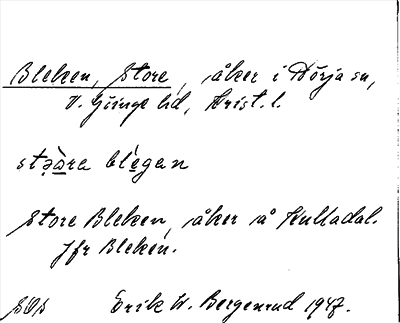 Bleken, Store, åker i Hörja sn,
V. Göinge hd, Krist. l.
stǫ̀ạra blégan
Store Bleken, åker å Kulladal.
Jfr Bleken.
SOS Erik W. Bergenrud 1947.